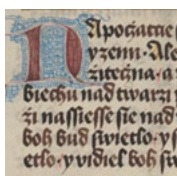 Na poczatcie s
yzemi· Ale
žitečna· a
biechu nad twarzi p
ži nassiesse sie nad
boh bud swietlo· y s
etlo· y vidiel boh sw